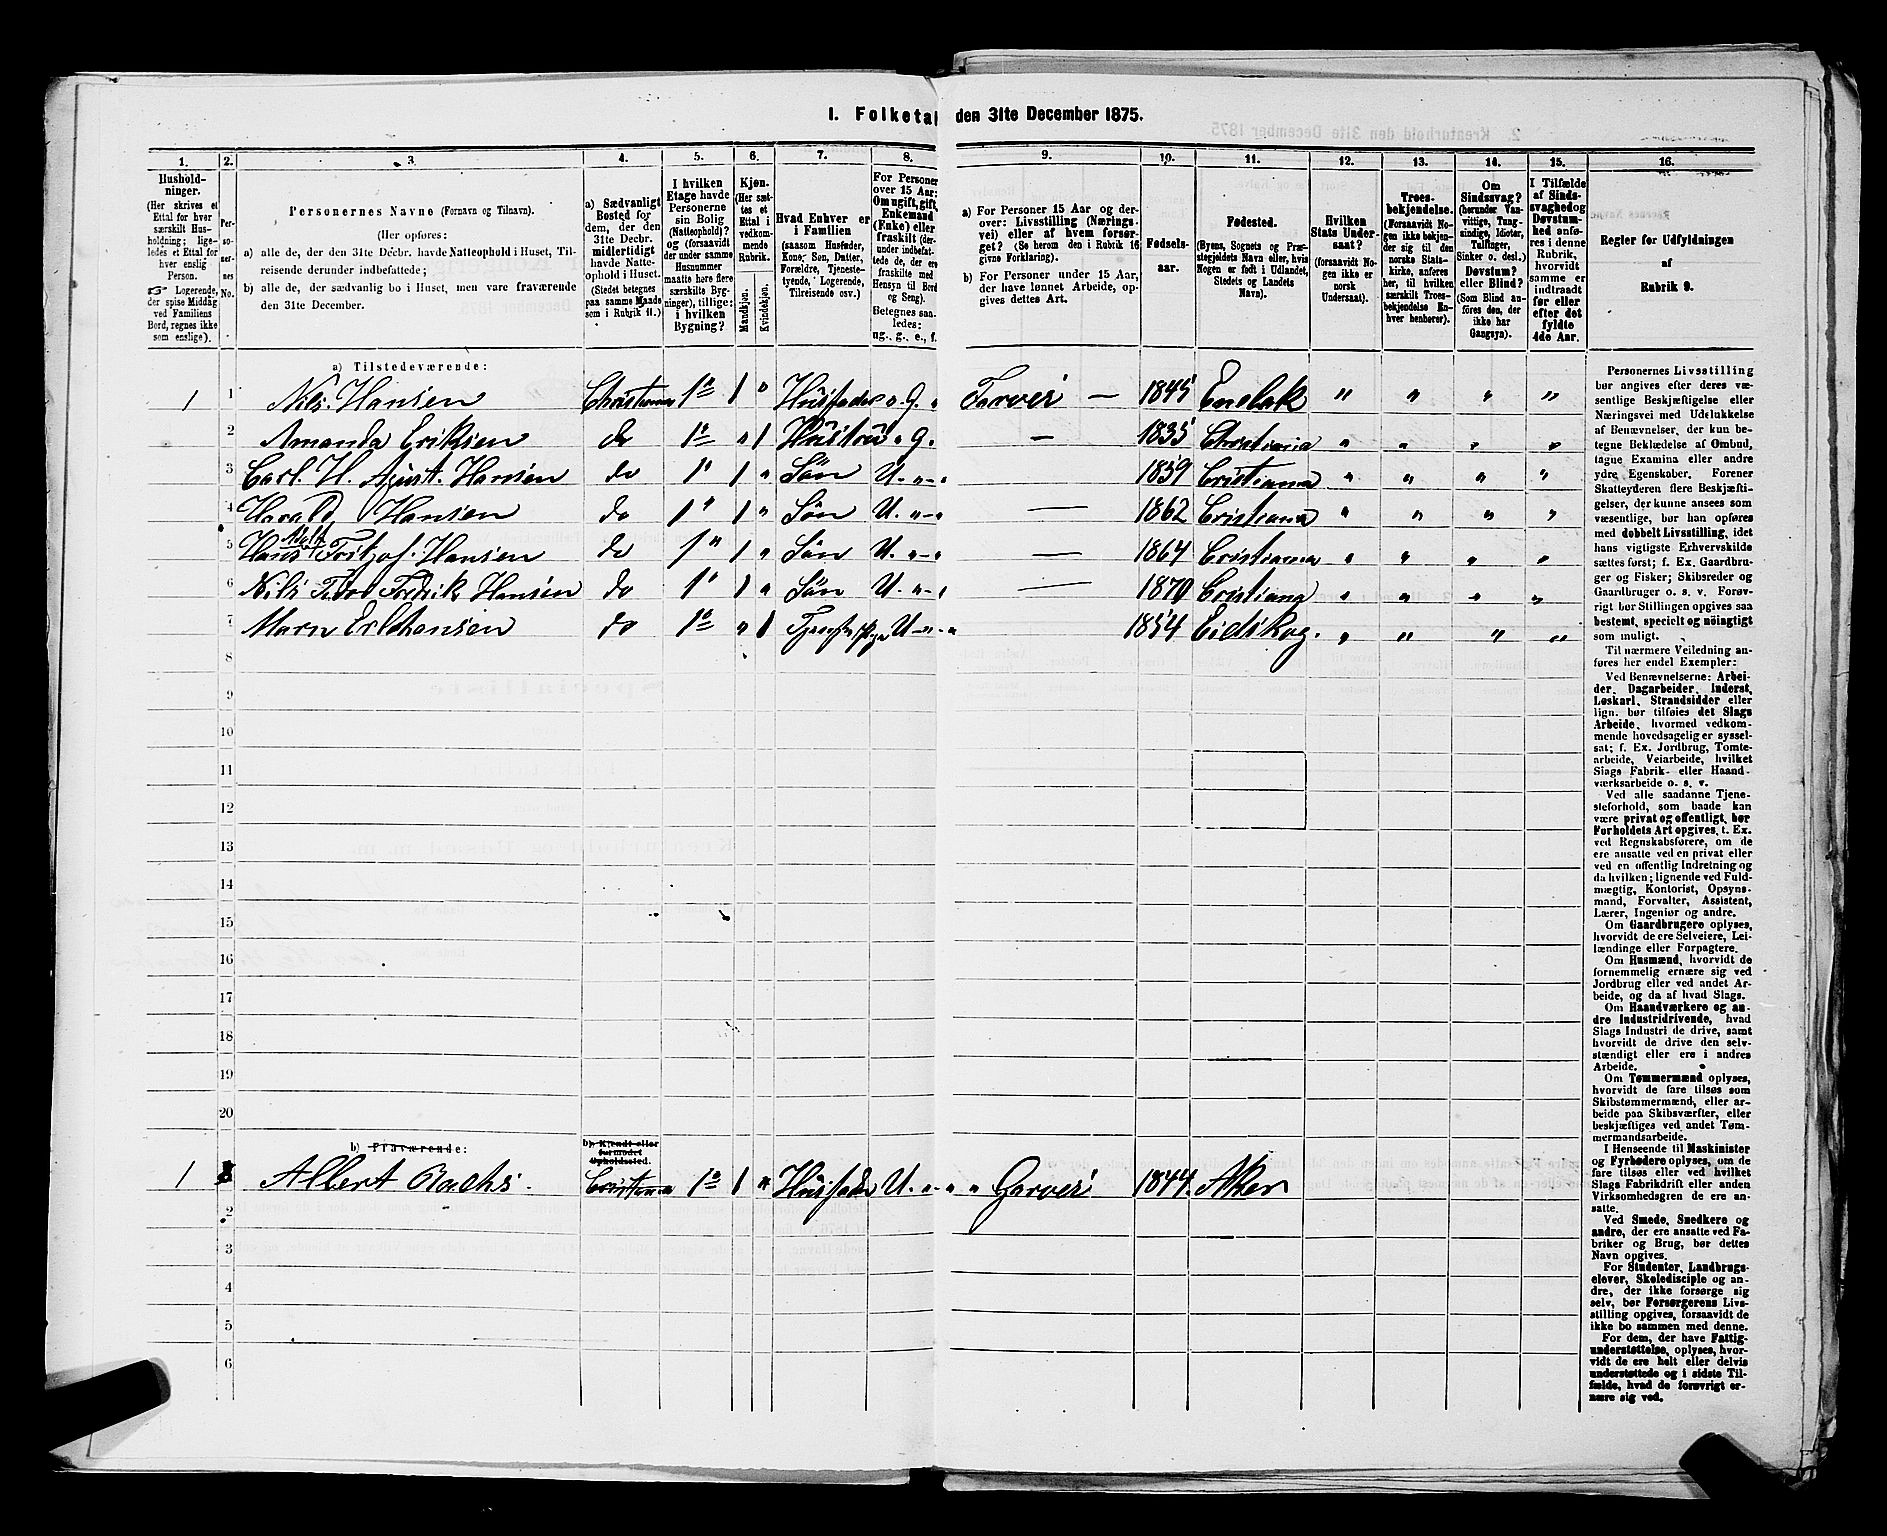 I. Folketal den 31te December 1875.
1. 2. 3. 4. 5. 6. 7. 8. 9. 10. 11. 12. 13. 14. 15. 16.
Hushold-
ninger.
(Her skrives et
Ettal for hver
særskilt Hus-
holdning; lige-
ledes et Ettal for
hver enslig
Person.
☞ Logerende,
der spise Middag
ved Familiens
Bord, regnes ikke
som enslige).
Per-
so-
ner-
nes
No.
Personernes Navne (Fornavn og Tilnavn).
(Her opføres:
a) alle de, der den 31te Decbr. havde Natteophold i Huset, Til-
reisende derunder indbefattede;
b) alle de, der sædvanlig bo i Huset, men vare fraværende
den 31te December.
a) Sædvanligt
Bosted for
dem, der den
31te Decbr.
midlertidigt
havde Natte-
ophold i Huset.
(Stedet betegnes
paa samme Maade
som i Rubrik 11.)
I hvilken
Etage havde
Personerne
sin Bolig
(Natteophold)?
og (forsaavidt
der under samme
Husnummer
maatte høre flere
særskilte Byg-
ninger), tillige:
i hvilken
Bygning?
Kjøn.
(Her sæt-
tes et
Ettal i
vedkom-
mende
Rubrik.
Mandkjøn.
Kvindekjøn.
Hvad Enhver er
i Familien
(saasom Husfader,
Kone, Søn, Datter,
Forældre, Tjeneste-
tyende, Logerende,
Tilreisende osv.)
For Personer
over 15 Aar:
Om ugift, gift,
Enkemand
(Enke) eller
fraskilt (der-
under indbefat-
tede de, der ere
fraskilte med
Hensyn til Bord
og Seng).
Betegnes saa-
ledes:
ug., g., e., f.
a) For Personer 15 Aar og der-
over: Livsstilling (Nærings-
vei) eller af hvem forsør-
get? (Se herom den i Rubrik 16
givne Forklaring).
b) For Personer under 15 Aar,
der have lønnet Arbeide, op-
gives dettes Art.
Fødsels-
aar.
Fødested.
(Byens, Sognets og Præ-
stegjeldets Navn eller, hvis
Nogen er født i Udlandet,
Stedets og Landets
Navn).
Hvilken
Stats Under-
saat?
(forsaavidt No-
gen ikke er
norsk
Undersaat).
Troes-
bekjendelse.
(Forsaavidt No-
gen ikke bekjen-
der sig til den
norske Stats-
kirke, anføres
her, til hvilken
særskilt Troes-
bekjendelse En-
hver henhører).
Om
Sindssvag?
(herunder Van-
vittige, Tung-
sindige, Idioter,
Tullinger,
Sinker o. desl.)
Døvstum?
eller Blind?
(Som Blind an-
føres den, der
ikke har
Gangsyn).
I Tilfælde
af Sinds-
svaghed og
Døvstum-
hed anføres
i denne
Rubrik,
hvorvidt
samme er
indtraadt
før eller
efter det
fyldte
4de Aar.
Regler for Udfyldningen
af
Rubrik 9.
a) Tilstedeværende:
1 1 Nils. Hansen Christiania 1ˢ 1 " Husfader G. Farver — 1845 Enebak " " " "
2 Amanda Eriksen do 1ˢ " 1 Hustru G. — 1835 Christiania " " " "
3 Carl. H. Agust. Hansen do 1 1 " Søn U. 1859 Cristiania " " " "
4 Harald Hansen do 1 1 " Søn U. — 1862 Cristiania " " " "
5 Hans Fritjof. Hansen do 1 1 " Søn U. — 1864 Cristiania " " " "
6 Nils Fredrik Hansen do 1 1 " Søn U. — 1870 Cristiania " " " "
7 Marn do 1ˢ " 1 U 1854 Eidskog. " " " "
8
9
10
11
12
13
14
15
16
17
18
19
20
b) Fraværende:
b) Kjendt eller
formodet
Opholdssted.
1 Albert Bachs. Cristiania 1ˢ 1 " Husfader U. Garver 1844. Aker
2
3
4
5
6
Personernes Livsstilling
bør angives efter deres væ-
sentlige Beskjæftigelse eller
Næringsvei med Udelukkelse
af Benævnelser, der kun be-
tegne Beklædelse af Ombud,
tagne Examina eller andre
ydre Egenskaber. Forener
Skatteyderen flere Beskjæfti-
gelser, der kunne ansees som
væsentlige, bør han opføres
med dobbelt Livsstilling, idet
hans vigtigste Erhvervskilde
sættes først; f. Ex. Gaardbru-
ger og Fisker; Skibsreder og
Gaardbruger o. s. v. Forøv-
rigt bør Stillingen opgives saa
bestemt, specielt og nøiagtigt
som muligt.
Til nærmere Veiledning an-
føres her endel Exempler:
Ved Benævnelserne: Arbei-
der, Dagarbeider, Inderst,
Løskarl, Strandsidder eller
lign. bør tilføies det Slags
Arbeide, hvormed vedkom-
mende hovedsagelig er syssel-
sat; f. Ex. Jordbrug, Tomte-
arbeide, Veiarbeide, hvilket
Slags Fabrik- eller Haand-
værksarbeide o. s. v.
Ved alle saadanne Tjene-
steforhold, som baade kan
være privat og offentligt, bør
Forholdets Art opgives, t. Ex.
ved Regnskabsførere, om de
ere ansatte ved en privat eller
ved en offentlig Indretning og
da hvilken; lignende ved Fuld-
mægtig, Kontorist, Opsyns-
mand, Forvalter, Assistent,
Lærer, Ingeniør og andre.
Om Gaardbrugere oplyses,
hvorvidt de ere Selveiere, Lei-
lændinge eller Forpagtere.
Om Husmænd, hvorvidt de
fornemmelig ernære sig ved
Jordbrug eller ved andet Ar-
beide, og da af hvad Slags.
Om Haandværkere og an-
dre Industridrivende, hvad
Slags Industri de drive, samt
hvorvidt de drive den selv-
stændigt eller ere i andres
Arbeide.
Om Tømmermænd oplyses,
hvorvidt de fare tilsøs som
Skibstømmermænd, eller ar-
beide paa Skibsværfter, eller
beskjæftiges ved andet Tøm-
mermandsarbeide.
I Henseende til Maskinister
og Fyrbødere oplyses, om de
fare tilsøs eller ved hvilket
Slags Fabrikdrift eller anden
Virksomhedsgren de ere an-
satte.
Ved Smede, Snedkere og
andre, der ere ansatte ved Fa-
briker og Brug, bør dettes
Navn opgives.
For Studenter, Landbrugs-
elever, Skoledisciple og an-
dre, der ikke forsørge sig
selv, bør Forsørgerens Livs-
stilling opgives, forsaavidt de
ikke bo sammen med denne.
For dem, der have Fattig-
understøttelse, oplyses, hvor-
vidt de ere helt eller delvis
understøttede og i sidste Til-
fælde, hvad de forøvrigt er-
nære sig ved.